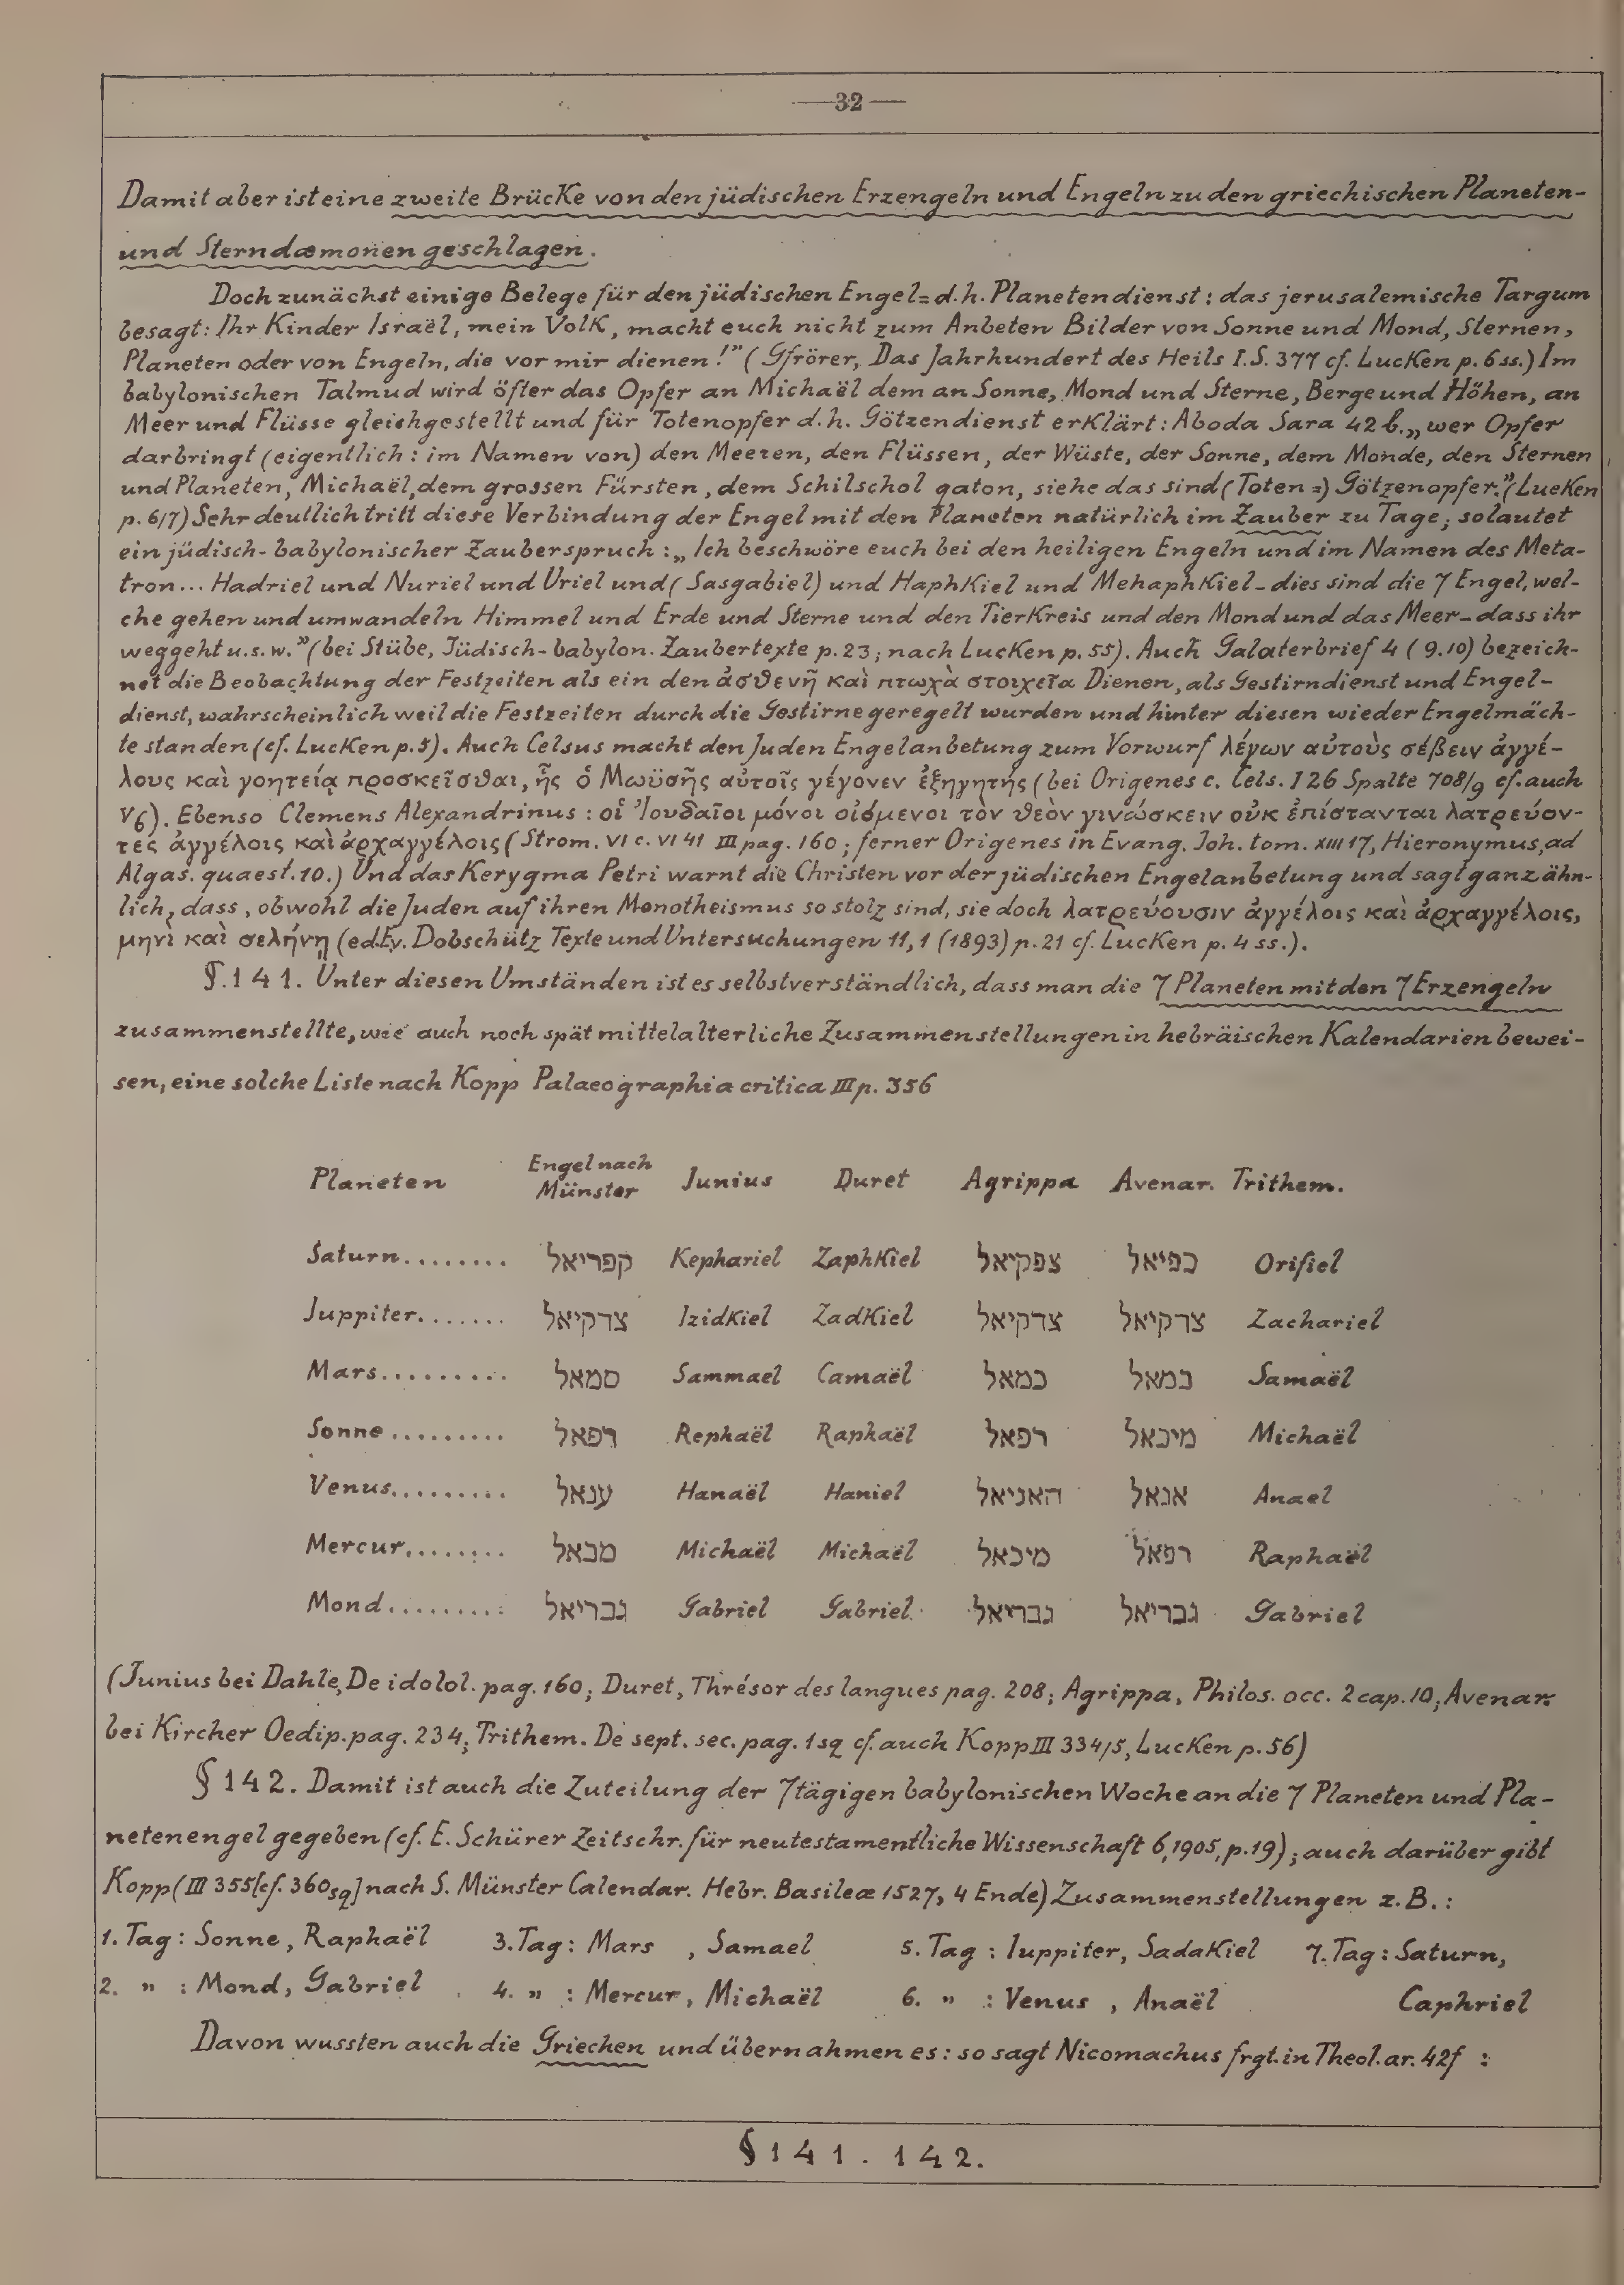 —32—
Damit aber ist eine zweite Brücke von den jüdischen Erzengeln und Engeln zu den griechischen Planeten-
und Sterndæmonen geschlagen.
Doch zunächst einige Belege für den jüdischen Engel= d.h. Planetendienst: das jerusalemische Targum
besagt: Ihr Kinder Israël, mein Volk, macht euch nicht zum Anbeten Bilder von Sonne und Mond, Sternen,
Planeten oder von Engeln, die vor mir dienen!” (Gfrörer, Das Jahrhundert des Heils I. S. 377 cf. Lucken p. 6 ss.) Im
babylonischen Talmud wird öfter das Opfer an Michaël dem an Sonne, Mond und Sterne, Berge und Höhen, an
Meer und Flüsse gleichgestellt und für Totenopfer d.h. Götzendienst erklärt: Aboda Sara 42 b. „wer Opfer
darbringt (eigentlich: im Namen von) den Meeren, den Flüssen, der Wüste, der Sonne, dem Monde, den Sternen
und Planeten, Michaël, dem grossen Fürsten, dem Schilschol qaton, siehe das sind (Toten=) Götzenopfer.” (Lueken
p. 6/7) Sehr deutlich tritt diese Verbindung der Engel mit den Planeten natürlich im Zauber zu Tage; so lautet
ein jüdisch-babylonischer Zauberspruch: „Ich beschwöre euch bei den heiligen Engeln und im Namen des Meta-
tron... Hadriel und Nuriel und Uriel und (Sasgabiel) und Haphkiel und Mehaphkiel – dies sind die 7 Engel, wel-
che gehen und umwandeln Himmel und Erde und Sterne und den Tierkreis und den Mond und das Meer – dass ihr
weggeht u.s.w.” (bei Stübe, Jüdisch-babylon. Zaubertexte p. 23; nach Lucken p. 55). Auch Galaterbrief 4 (9.10) bezeich-
net die Beobachtung der Festzeiten als ein den ἀσθενῆ καὶ πτωχὰ στοιχεῖα Dienen, als Gestirndienst und Engel-
dienst, wahrscheinlich weil die Festzeiten durch die Gestirne geregelt wurden und hinter diesen wieder Engelmäch-
te standen (cf. Lucken p. 5). Auch Celsus macht den Juden Engelanbetung zum Vorwurf λέγων αὐτοὺς σέβειν ἀγγέ-
λους καὶ γοητείᾳ προσκεῖσθαι, ἧς ὁ Μωϋσῆς αὐτοῖς γέγονεν ἐξηγητής (bei Origenes c. Cels. I 26 Spalte 708/9 cf. auch
V 6). Ebenso Clemens Alexandrinus: οἱ Ἰουδαῖοι μόνοι οἰόμενοι τὸν θεὸν γινώσκειν οὐκ ἐπίστανται λατρεύον-
τες ἀγγέλοις καὶ ἀρχαγγέλοις (Strom. VI c. VI 41 III pag. 160; ferner Origenes in Evang. Joh. tom. XIII 17, Hieronymus, ad
Algas. quaest. 10.) Und das Kerygma Petri warnt die Christen vor der jüdischen Engelanbetung und sagt ganz ähn-
lich, dass, obwohl die Juden auf ihren Monotheismus so stolz sind, sie doch λατρεύουσιν ἀγγέλοις καὶ ἀρχαγγέλοις,
μηνὶ καὶ σελήνῃ (ed. Ev. Dobschütz Texte und Untersuchungen 11, 1 (1893) p. 21 cf. Lucken p. 4 ss.).
§. 141. Unter diesen Umständen ist es selbstverständlich, dass man die 7 Planeten mit den 7 Erzengeln
zusammenstellte, wie auch noch spät mittelalterliche Zusammenstellungen in hebräischen Kalendarien bewei-
sen, eine solche Liste nach Kopp Palaeographia critica III p. 356
Planeten Engel nach Münster Junius Duret Agrippa Avenar. Trithem.
Saturn........ קפריאל Kephariel Zaphkiel צפקיאל כפיאל Orifiel
Juppiter....... צדקיאל Izidkiel Zadkiel צדקיאל צדקיאל Zachariel
Mars......... סמאל Sammael Camaël כמאל כמאל Samaël
Sonne......... רפאל Rephaël Raphaël רפאל מיכאל Michaël
Venus......... ענאל Hanaël Haniel האניאל אנאל Anael
Mercur........ מכאל Michaël Michaël מיכאל רפאל Raphaël
Mond......... גבריאל Gabriel Gabriel גבריאל גבריאל Gabriel
(Junius bei Dahle, De idolol. pag. 160; Duret, Thrésor des langues pag. 208; Agrippa, Philos. occ. 2 cap. 10; Avenar.
bei Kircher Oedip. pag. 234; Trithem. De sept. sec. pag. 1 sq cf. auch Kopp III 334/5, Lucken p. 56)
§ 142. Damit ist auch die Zuteilung der 7tägigen babylonischen Woche an die 7 Planeten und Pla-
netenengel gegeben (cf. E. Schürer Zeitschr. für neutestamentliche Wissenschaft 6, 1905, p. 19); auch darüber gibt
Kopp (III 355 [cf. 360 sq] nach S. Münster Calendar. Hebr. Basileæ 1527, 4 Ende) Zusammenstellungen z.B.:
1. Tag: Sonne, Raphaël 3. Tag: Mars, Samael 5. Tag: Iuppiter, Sadakiel 7. Tag: Saturn,
2. „ : Mond, Gabriel 4. „ : Mercur, Michaël 6. „ : Venus, Anaël Caphriel
Davon wussten auch die Griechen und übernahmen es: so sagt Nicomachus frgt. in Theol. ar. 42f :
§ 141. 142.